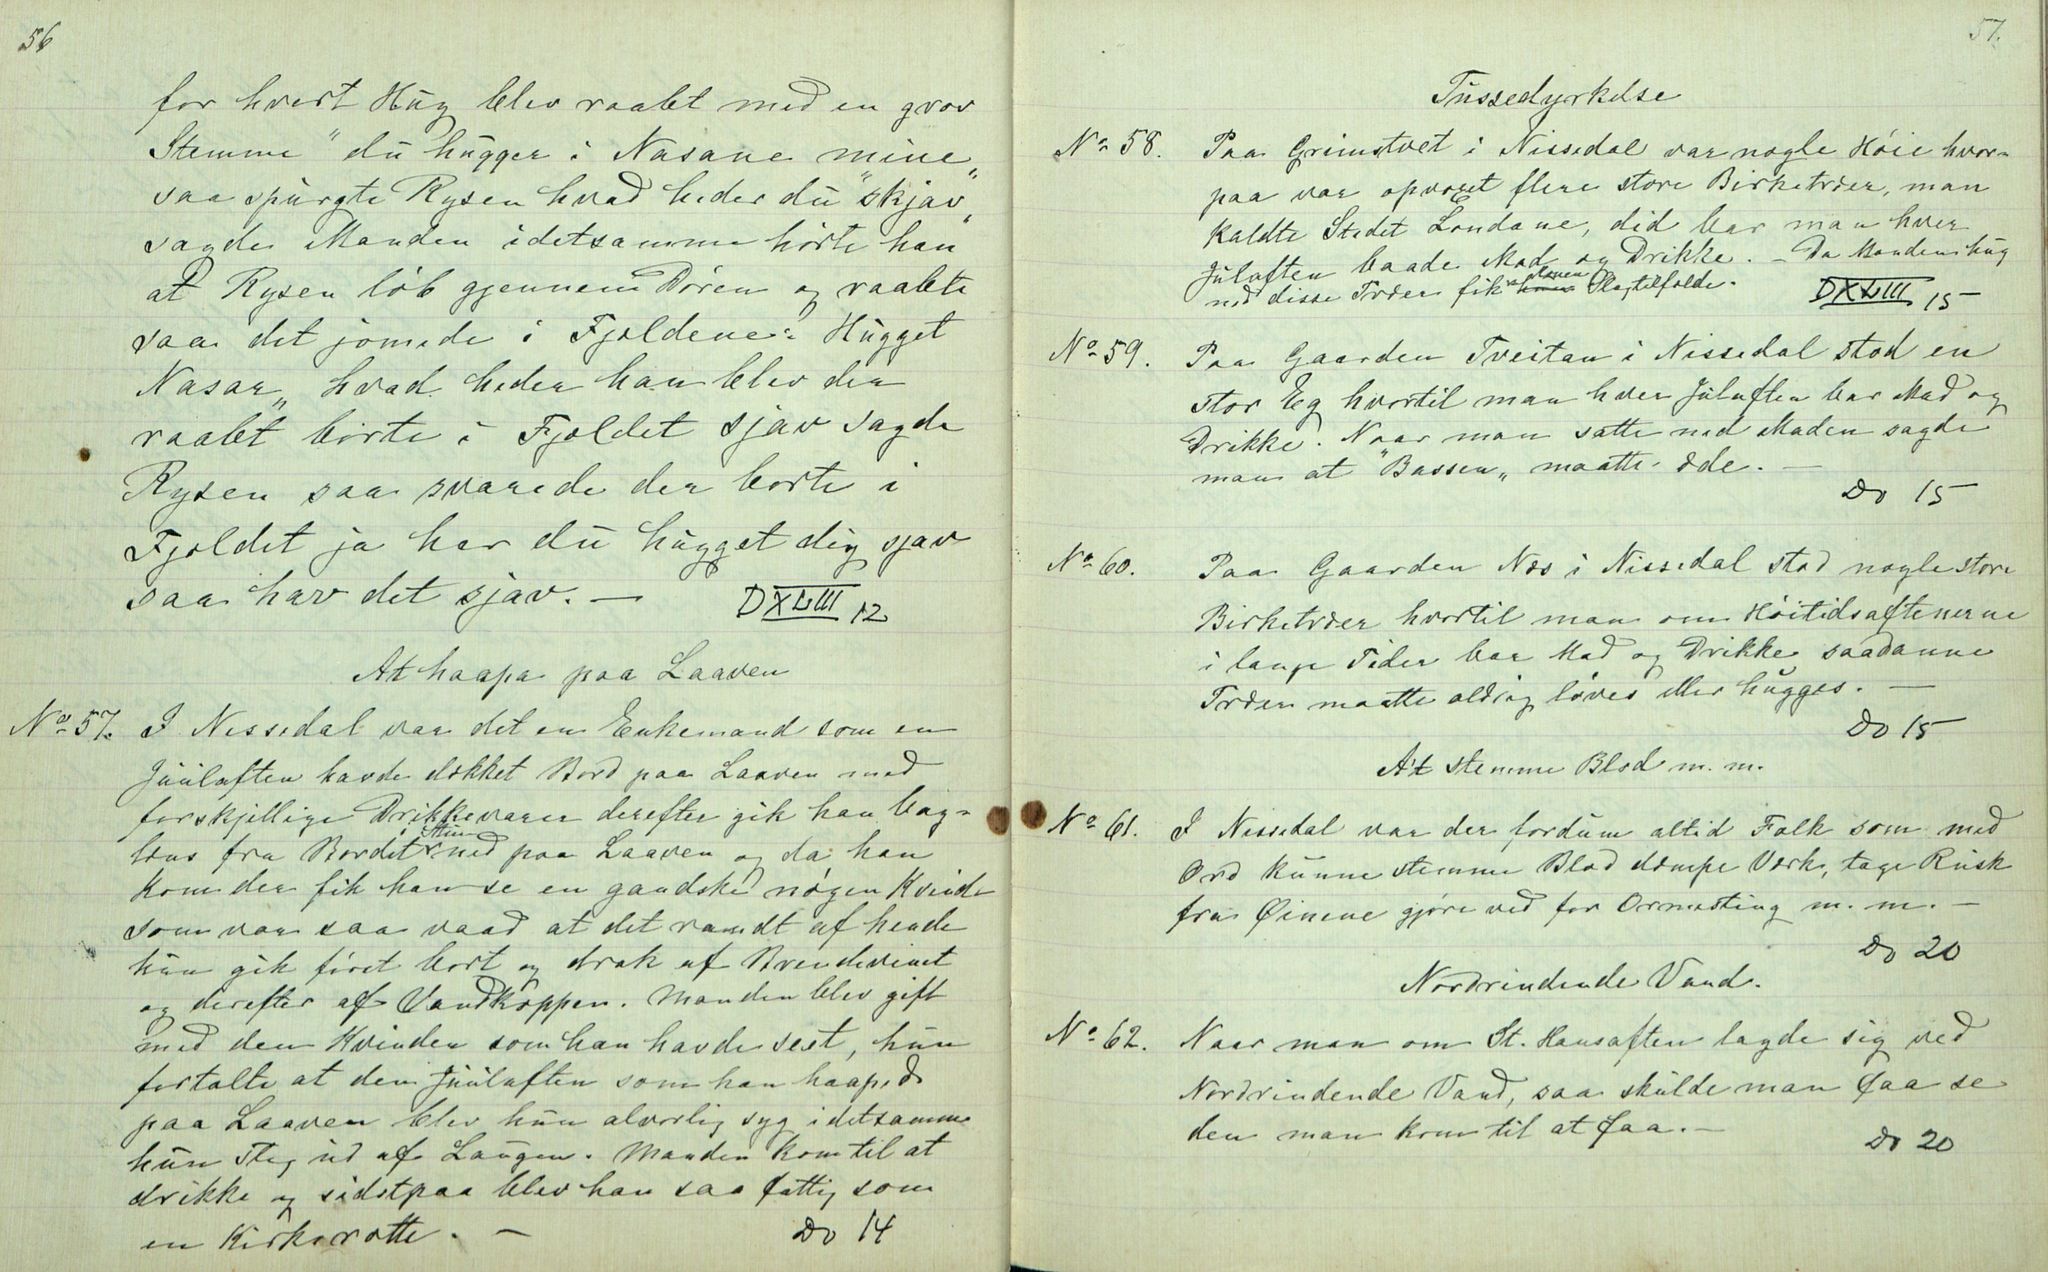 56
for hvert Hug blev raabt med en grov
Stemme "du hugger i Nasane mine„
saa spurgte Rysen hvad heder du "skjav„
sagde Manden idetsamme hørte han
at Rysen løb gjennem Døren og raabte
saa det jomede i Fjeldene: Hugget
Nasar„ hvad heder han blev der
raabt borte i Fjeldet sjav sagde
Rysen saa svarede der borte i
Fjeldet ja har du hugget dig sjav
saa hav det sjav. —
DXLIII 12
At haapa paa Laaven
No 57. I Nissedal var det en Enkemand som en
Juulaften havde dækket Bord paa Laaven med
forskjellige Drikkevarer derefter gik han bag-
læns fra Bordet ned paa Laaven og da han
kom der fik han se en gandske nøgen Kvinde
som var saa vaad at det randt af hende
hun gik først bort og drak af Brendevinet
og derefter af Vandkoppen. Manden blev gift
med den Kvinden som han havde seet, hun
fortalte at den Juulaften som han haaped
paa Laaven blev hun alvorlig syg idetsamme
hun steg ud af Laugen. Manden kom til at
drikke og sidstpaa blev han saa fattig som
en Kirkerotte. —
Do 14
57.
Tussedyrkelse
No 58. Paa Grimstvet i Nissedal var nogle Høie hvor-
paa var opvoxet flere store Birketræer, man
kaldte Stedet Londane, did bar man hver
Juluften baade Mad og Drikke. – Da Manden hug
ned disse Træer fik Slagtilfælde.
DXLIII 15
No 59. Paa Gaarden Tveitan i Nissedal stod en
stor Eg hvortil man hver Juluften bar Mad og
Drikke. Naar man satte ned Maden sagde
man at "Bassen„ maatte æde. —
Do 15
No 60. Paa Gaarden Næs i Nissedal stod nogle store
Birketræer hvortil man om Høitidsaftenerne
i lange Tider bar Mad og Drikke, saadanne
Træer maatte aldrig løves eller hugges. —
Do 15
At stemme Blod m. m.
No 61. I Nissedal var der fordum altid Folk som med
Ord kunne stemme Blod dæmpe Værk, tage Rusk
fra Øinene gjøre ved for Ormesting m. m. —
Do 20
Nordrindende Vand.
No 62. Naar man om St. Hansaften lagde sig ved
Nordrindende Vand, saa skulde man faa se
den man kom til at faa. —
Do 20